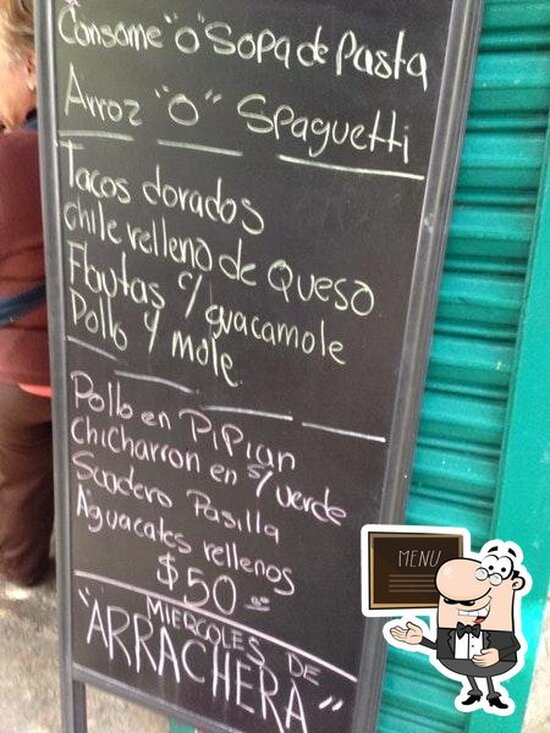 Consome "o" Sopa de Pasta
Arroz "o" Spaguetti
Tacos dorados
chile relleno de queso
Flautas c/ guacamole
Pollo y mole
Pollo en PiPian
chicharron en s/ verde
Suadero Pasilla
Aguacates rellenos
$50
MIERCOLES DE
"ARRACHERA"
MENU